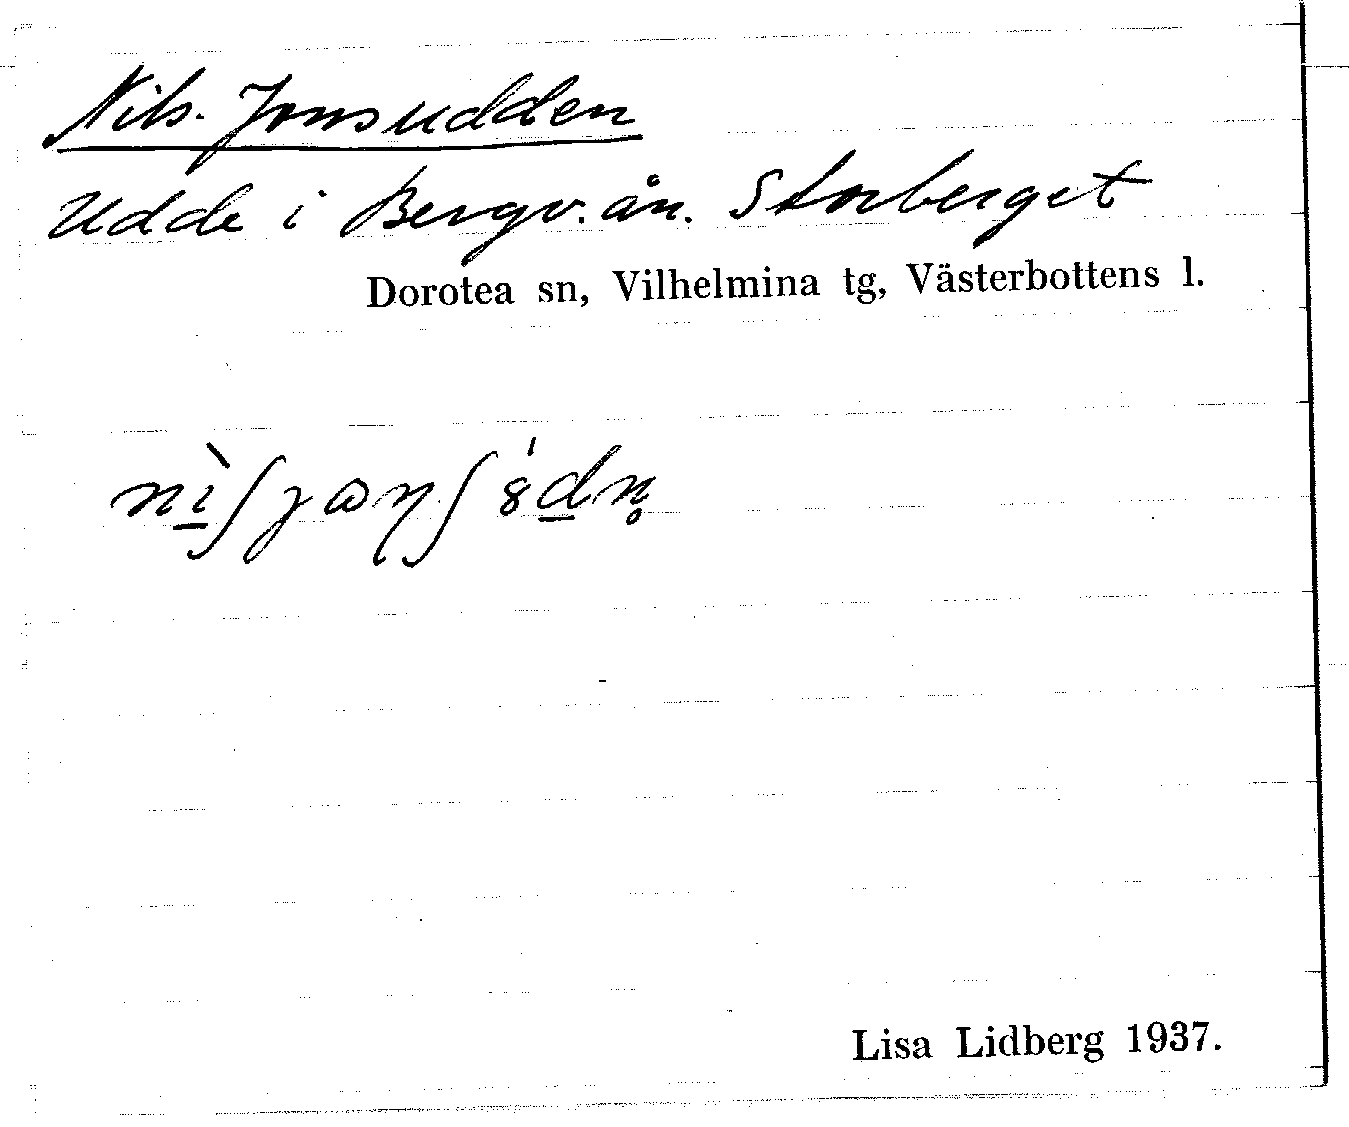 Nils-Jonsudden
Udde i Bergv.ån. Storberget
Dorotea sn, Vilhelmina tg, Västerbottens l.
nı̱̀ʃȷɷηʃ8́ḏn̥
Lisa Lidberg 1937.